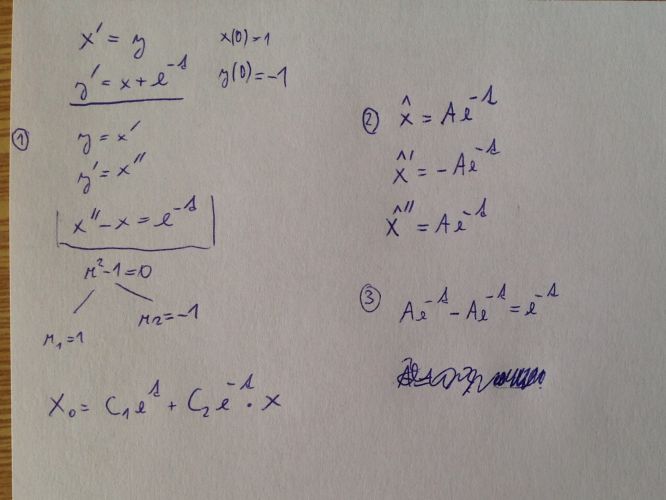 x' = y    x(0)=1
y' = x + e^{-s}    y(0)=-1
① y = x'
y' = x''
x'' - x = e^{-s}
r² - 1 = 0
r₁=1    r₂=-1
X₀ = C₁e^{s} + C₂e^{-s} · x
② x̂ = Ae^{-s}
x̂' = -Ae^{-s}
x̂'' = Ae^{-s}
③ Ae^{-s} - Ae^{-s} = e^{-s}